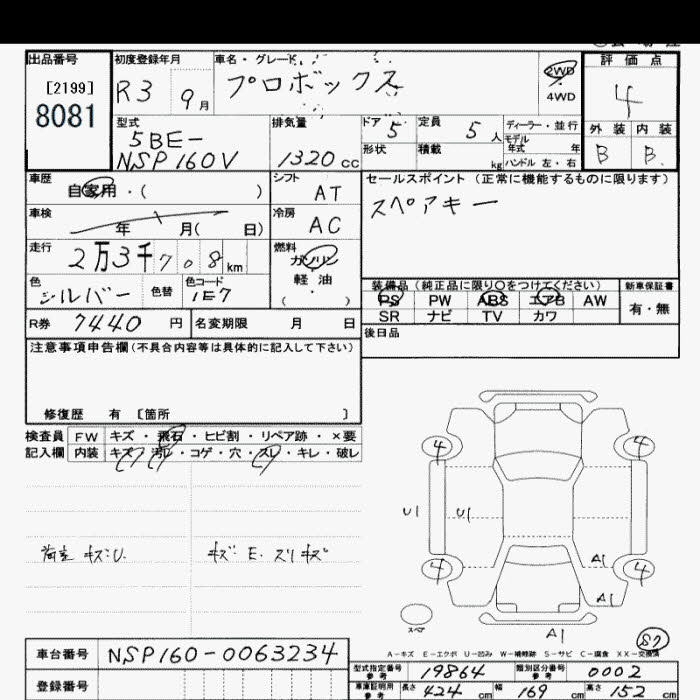 出品番号 初度登録年月 車名・グレード 評価点
[2199] R3 9月 プロボックス 2WD 4
8081 4WD
型式 排気量 ドア 5 定員 5人 ディーラー・並行 外装 内装
5BE- モデル年式 年 B B
NSP160V 1320cc 形状 積載 kg ハンドル 左・右
車歴 自家用・( ) シフト AT セールスポイント(正常に機能するものに限ります)
車検 年 月( 日) 冷房 AC スペアキー
走行 2万3千708km 燃料 ガソリン
軽油
( )
色 シルバー 色替 色コード 1E7
装備品(純正品に限り○をつけてください) 新車保証書
PS PW ABS エアB AW 有・無
SR ナビ TV カワ
R券 7440円 名変期限 月 日 後日品
注意事項申告欄(不具合内容等は具体的に記入して下さい)
修復歴 有 [箇所 ]
検査員 FW キズ・飛石・ヒビ割・リペア跡・×要
記入欄 内装 キズ・汚レ・コゲ・穴・スレ・キレ・破レ
4 4
U1 U1
キズU. キズ E. スリキズ
4 A1 4
A1
スペア
A1
S7
A-キズ E-エクボ U-凹み W-補修跡 S-サビ C-腐食 XX-交換済
車台番号 NSP160-0063234
型式指定番号 参考 19864 類別区分番号 参考 0002
登録番号
車庫証明用 参考 長さ 424cm 幅 169cm 高さ 152cm